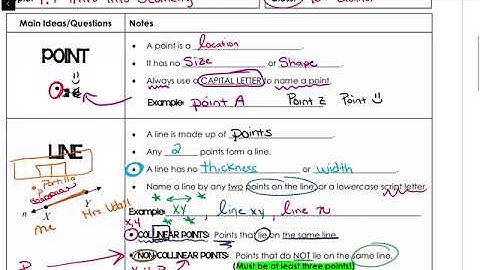 1.1 Intro into Geometry
Main Ideas/Questions
Notes
POINT
• A point is a location.
• It has no size or shape.
• Always use a CAPITAL LETTER to name a point.
Example: point A Point Z Point
LINE
• A line is made up of points.
• Any 2 points form a line.
• A line has no thickness or width.
• Name a line by any two points on the line or a lowercase script letter.
Portillo
n X Y
me
Mrs Wall
Example: XY, line xy, line n
x,y
COLLINEAR POINTS: Points that lie on the same line.
NON COLLINEAR POINTS: Points that do NOT lie on the same line.
(Must be at least three points!)